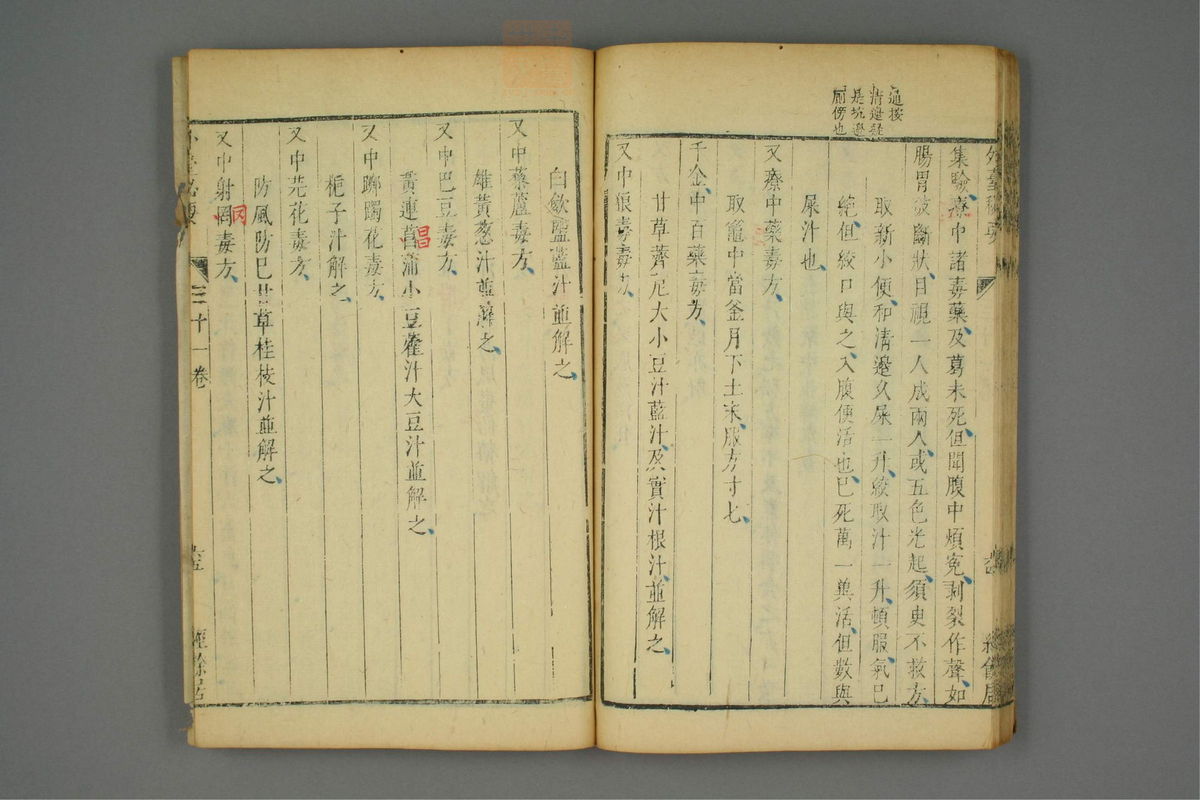 集驗療中諸毒藥及葛未死但聞腹中煩寃剥裂作聲如
腸胃彼斷狀目視一人成兩人或五色光起須臾不救方
取新小便和清邊久屎一升絞取汁一升頓服氣已
絶但絞口與之入腹便活也已死萬一兾活但數與
屎汁也
又療中藥毒方
取竈中當釜月下土末服方寸匕
千金中百藥毒方
甘草薺苨大小豆汁藍汁及實汁根汁並解之
又中狼毒毒方
道按
清邊疑
是坑邊
廁傍也
白斂鹽藍汁並解之
又中藜蘆毒方
雄黃葱汁並解之
又中巴豆毒方
黃連菖蒲小豆藿汁大豆汁並解之
昌
又中躑躅花毒方
梔子汁解之
又中芫花毒方
防風防巳甘草桂枝汁並解之
又中射罔毒方
罔
外臺秘要
三十一卷
經餘居